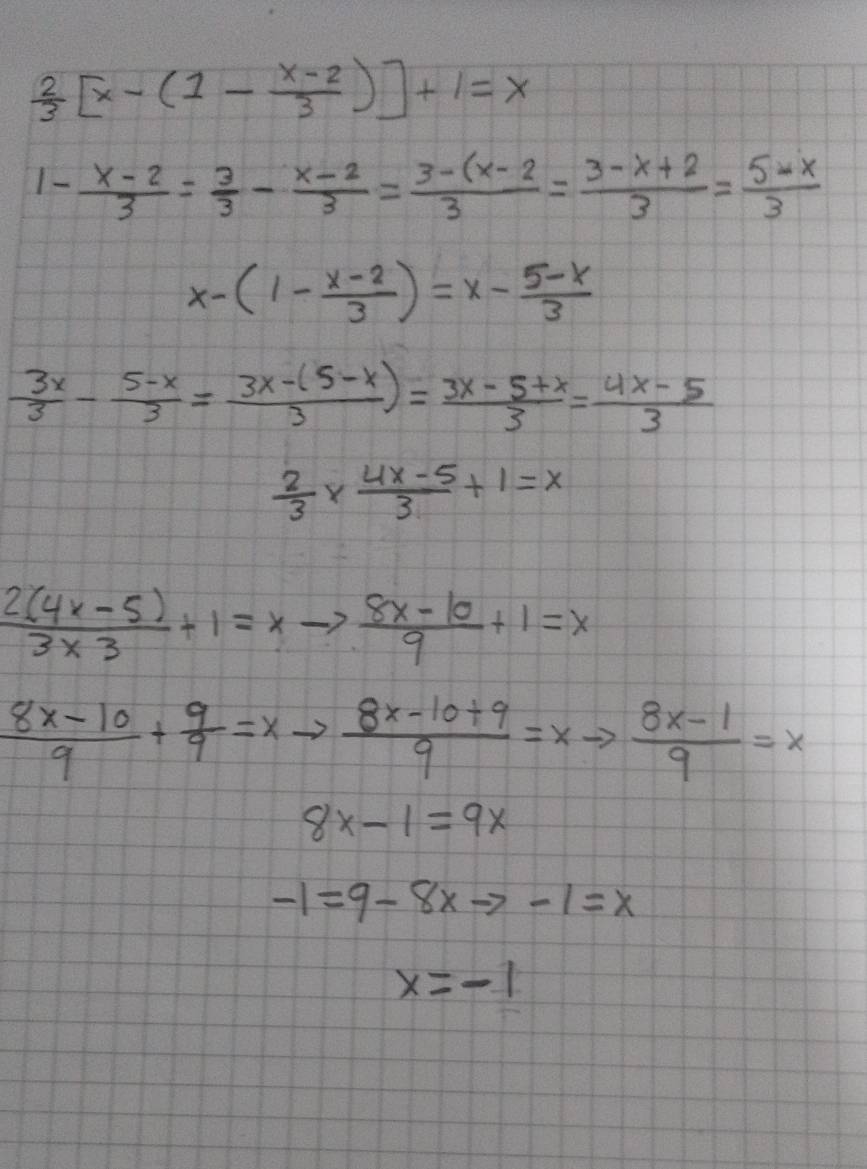 2/3 [x - (1 - x-2/3)] + 1 = x
1 - x-2/3 = 3/3 - x-2/3 = 3-(x-2/3 = 3-x+2/3 = 5-x/3
x-(1 - x-2/3) = x - 5-x/3
3x/3 - 5-x/3 = 3x-(5-x)/3 = 3x-5+x/3 = 4x-5/3
2/3 x 4x-5/3 + 1 = x
2(4x-5)/3x3 + 1 = x → 8x-10/9 + 1 = x
8x-10/9 + 9/9 = x → 8x-10+9/9 = x → 8x-1/9 = x
8x-1 = 9x
-1 = 9-8x → -1 = x
x = -1